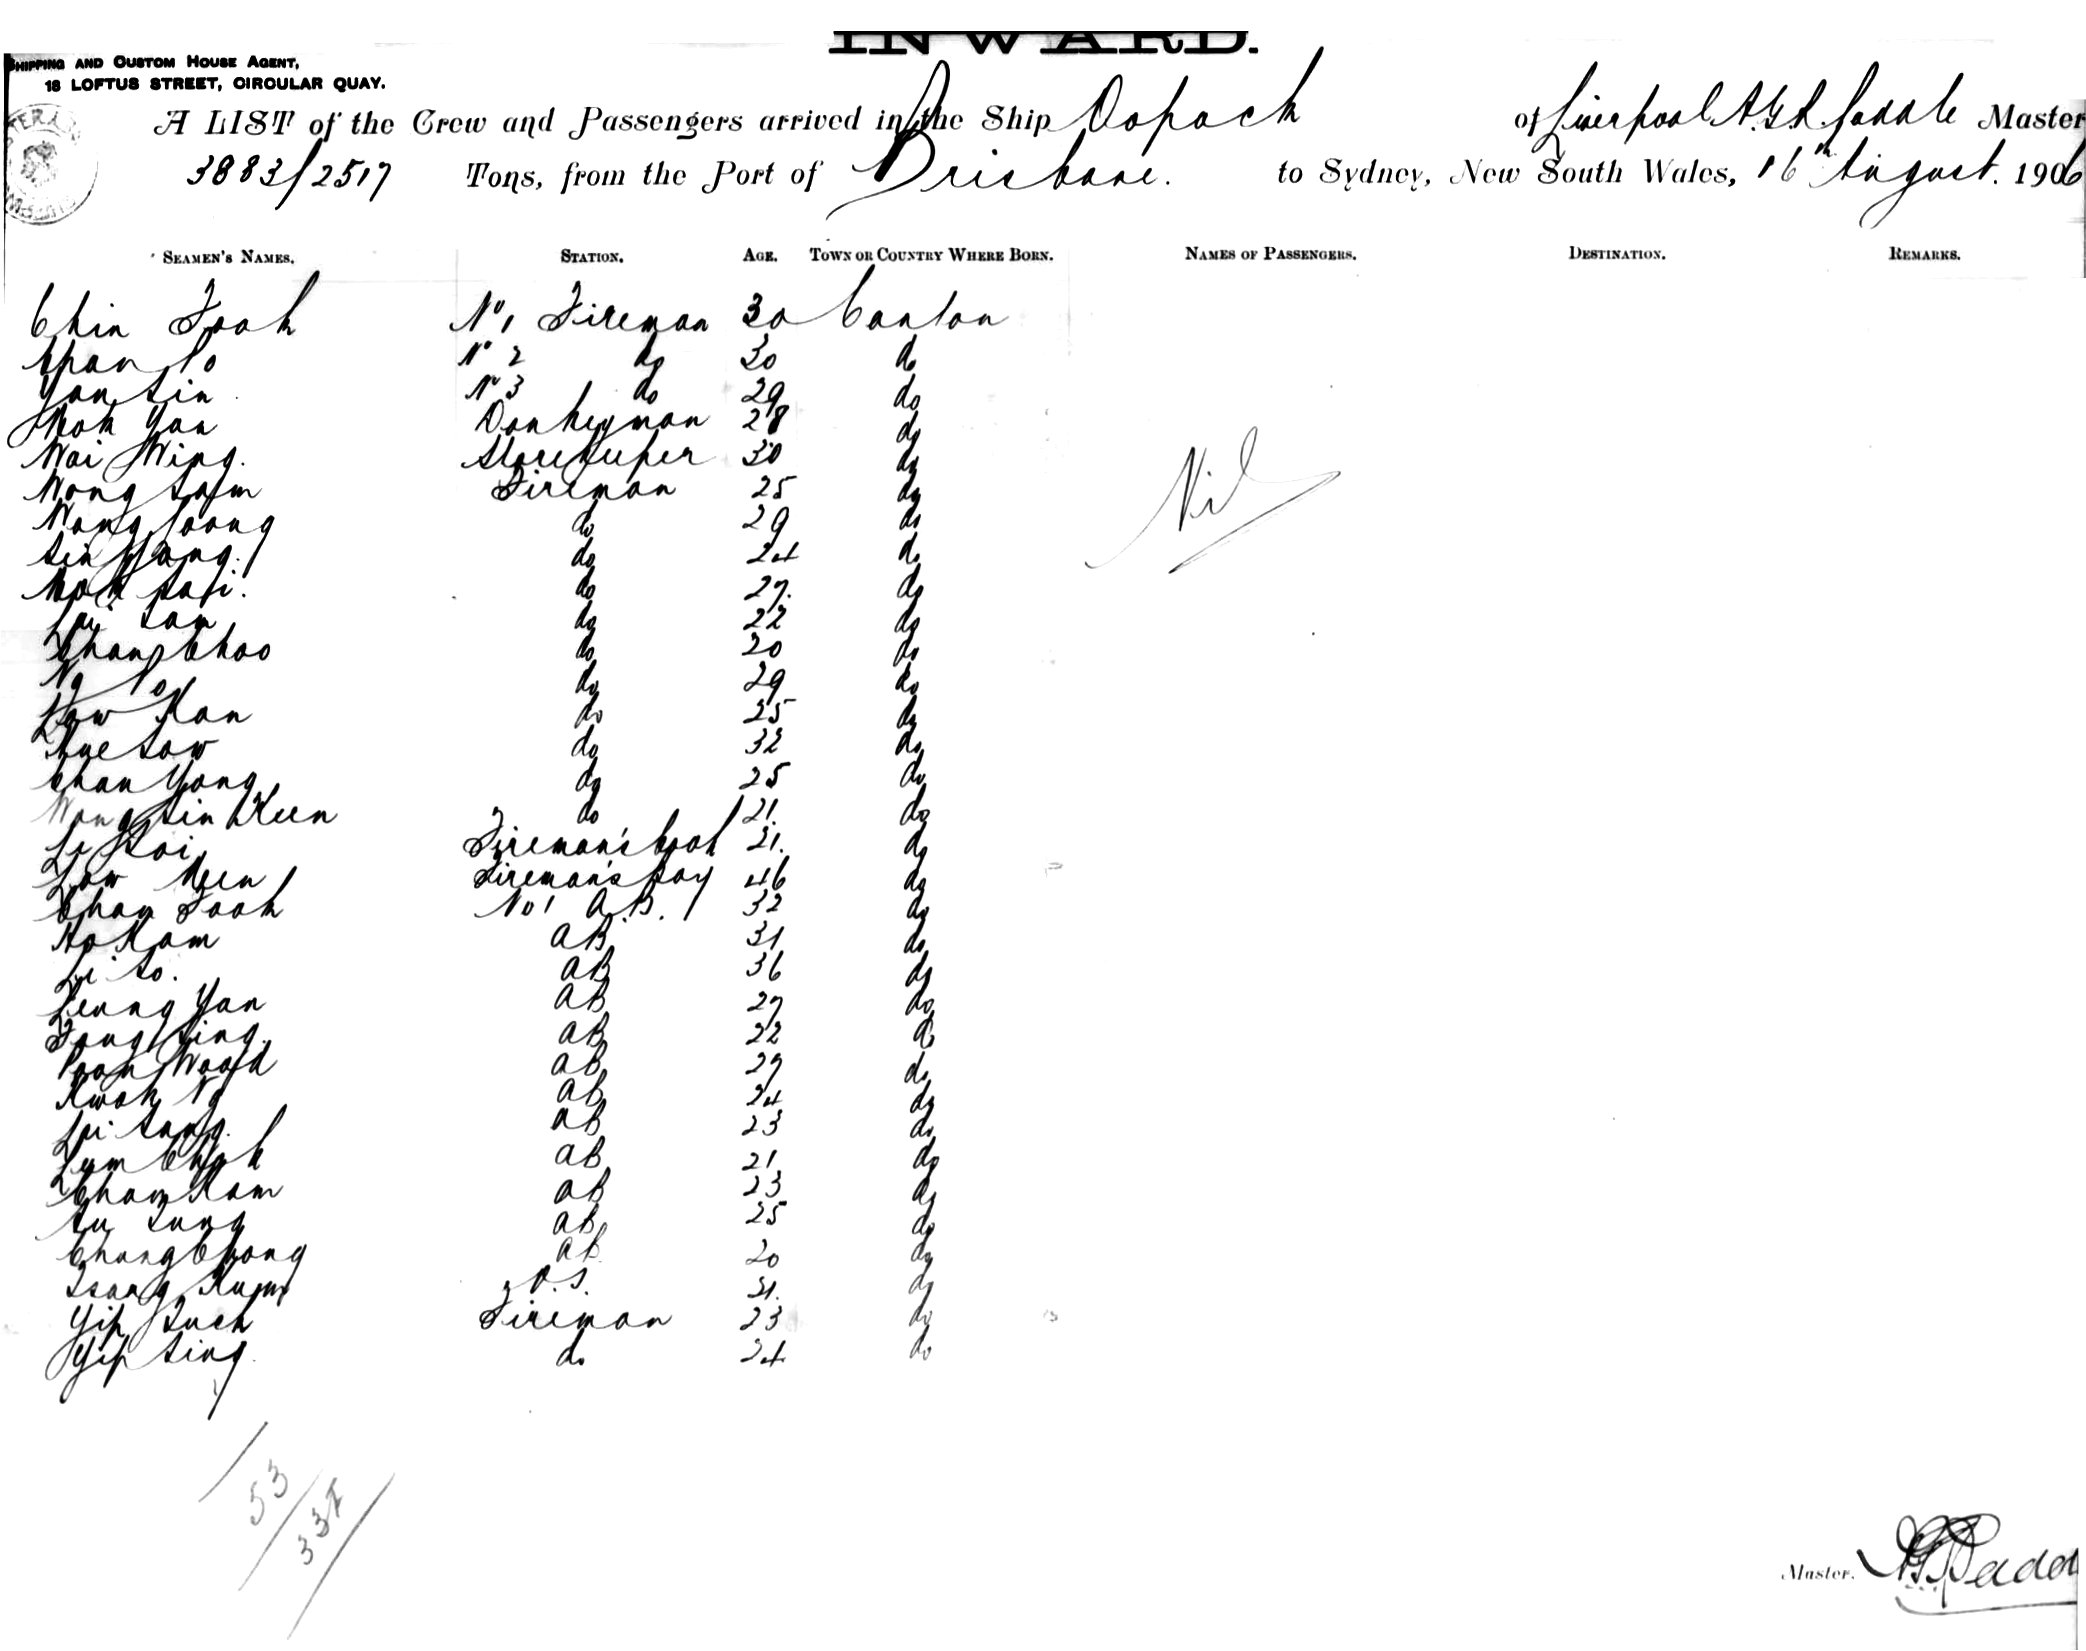 INWARD.
SHIPPING AND CUSTOM HOUSE AGENT,
18 LOFTUS STREET, CIRCULAR QUAY.
A LIST of the Crew and Passengers arrived in the Ship Oopack of Liverpool A.G.R. Master
3883/2517 Tons, from the Port of Brisbane. to Sydney, New South Wales, 16th August. 1906
SEAMEN'S NAMES. STATION. AGE. TOWN OR COUNTRY WHERE BORN. NAMES OF PASSENGERS. DESTINATION. REMARKS.
Chin Fook No 1 Fireman 30 Canton
Chan Po No 2 do 30 do
Yan Sin No 3 do 29 do
Mok Yan Donkeyman 28 do
Wai Wing. Storekeeper 30 do
Wong Sam Fireman 25 do
Wong do 29 do
Nil
Sin do 24 do
Mok do 27. do
Lai San do 22 do
Chan Choo do 20 do
Ng Po do 29 do
Low Kan do 25 do
Sue Sow do 32 do
Chan Yong do 25 do
Wong Sin Keen do 21. do
Le Fireman's Cook 21. do
Low Keen Fireman's Boy 46 do
Chan Fook No 1 A.B. 32 do
Ho Kam AB 31 do
Li So. AB 36 do
Leung Yan AB 27 do
Fong Sing. AB 22 do
Poon AB 27 do
Kwok Ng AB 24 do
Lai AB 23 do
Lum AB 21 do
Chan Kam AB 23 do
Su Sung AB 25 do
Chung Chong AB 20 do
Tsang O.S. 21. do
Yip Fireman 23 do
Yip Sing. do 24 do
53
Master.